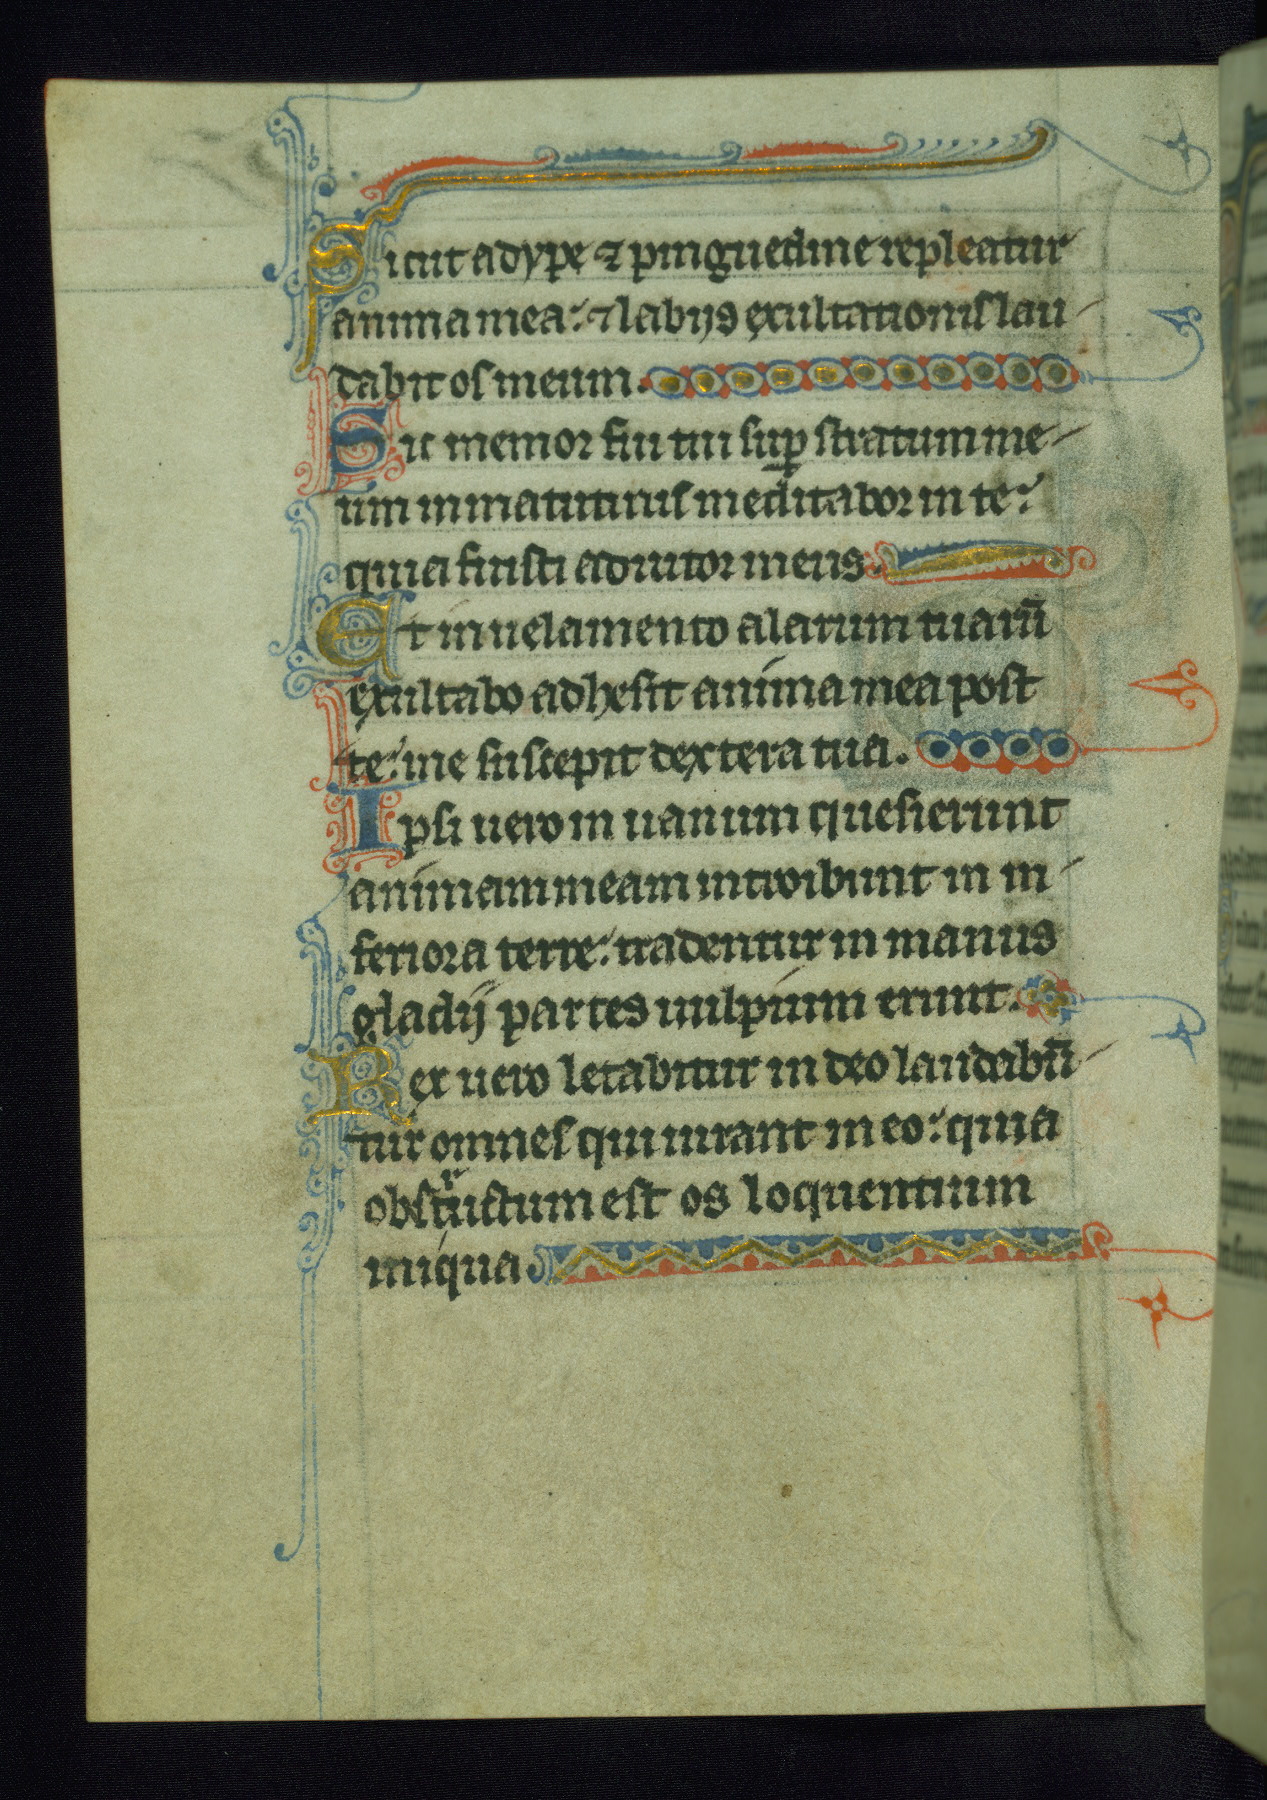 Sicut adype ⁊ pinguedine repleatur
anima mea: ⁊ labijs exultationis lau-
dabit os meum.
Sic memor fui tui sup̱ stratum me-
um in matutinis meditabor in te:
quia fuisti adiutor meus.
Et in uelamento alarum tuaru̅
exultabo adhesit anima mea post
te: me suscepit dextera tua.
Ipsi uero in uanum quesierunt
animam meam introibunt in in-
feriora terre: tradentur in manus
gladij partes uulpium erunt.
Rex uero letabitur in deo laudabu̅-
tur omnes qui iurant in eo: quia
obstructum est os loquentium
iniqua.